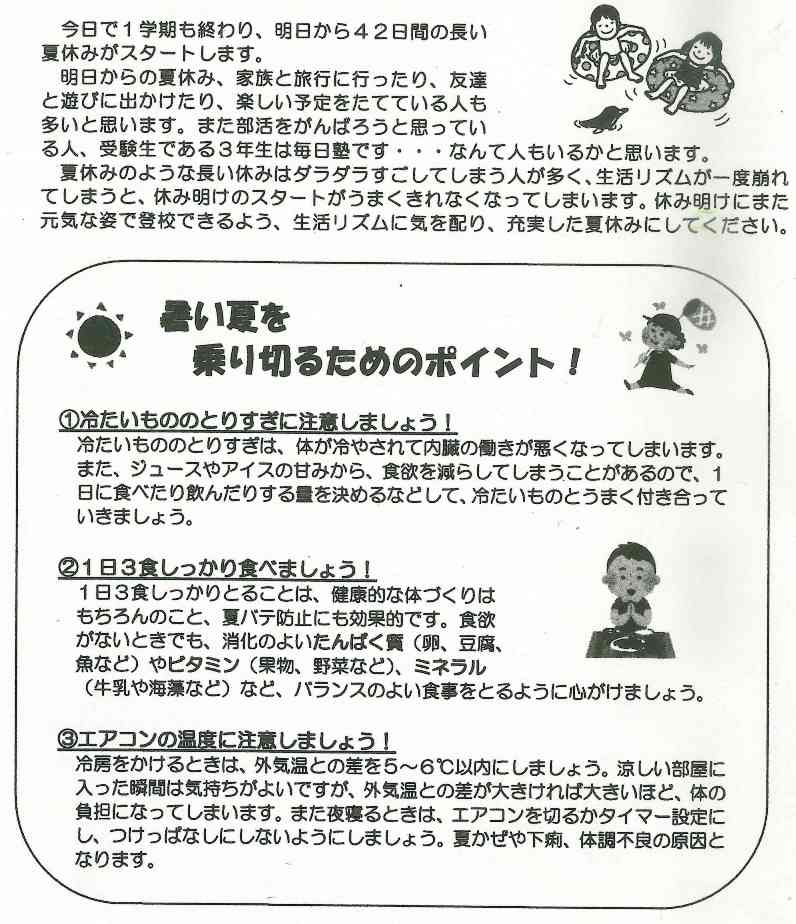 今日で１学期も終わり、明日から４２日間の長い
夏休みがスタートします。
明日からの夏休み、家族と旅行に行ったり、友達
と遊びに出かけたり、楽しい予定をたてている人も
多いと思います。また部活をがんばろうと思ってい
る人、受験生である３年生は毎日塾です・・・なんて人もいるかと思います。
夏休みのような長い休みはダラダラすごしてしまう人が多く、生活リズムが一度崩れ
てしまうと、休み明けのスタートがうまくきれなくなってしまいます。休み明けにまた
元気な姿で登校できるよう、生活リズムに気を配り、充実した夏休みにしてください。
暑い夏を
乗り切るためのポイント！
①冷たいもののとりすぎに注意しましょう！
冷たいもののとりすぎは、体が冷やされて内臓の働きが悪くなってしまいます。
また、ジュースやアイスの甘みから、食欲を減らしてしまうことがあるので、１
日に食べたり飲んだりする量を決めるなどして、冷たいものとうまく付き合って
いきましょう。
②１日３食しっかり食べましょう！
１日３食しっかりとることは、健康的な体づくりは
もちろんのこと、夏バテ防止にも効果的です。食欲
がないときでも、消化のよいたんぱく質（卵、豆腐、
魚など）やビタミン（果物、野菜など）、ミネラル
（牛乳や海藻など）など、バランスのよい食事をとるように心がけましょう。
③エアコンの温度に注意しましょう！
冷房をかけるときは、外気温との差を５～６℃以内にしましょう。涼しい部屋に
入った瞬間は気持ちがよいですが、外気温との差が大きければ大きいほど、体の
負担になってしまいます。また夜寝るときは、エアコンを切るかタイマー設定に
し、つけっぱなしにしないようにしましょう。夏かぜや下痢、体調不良の原因と
なります。